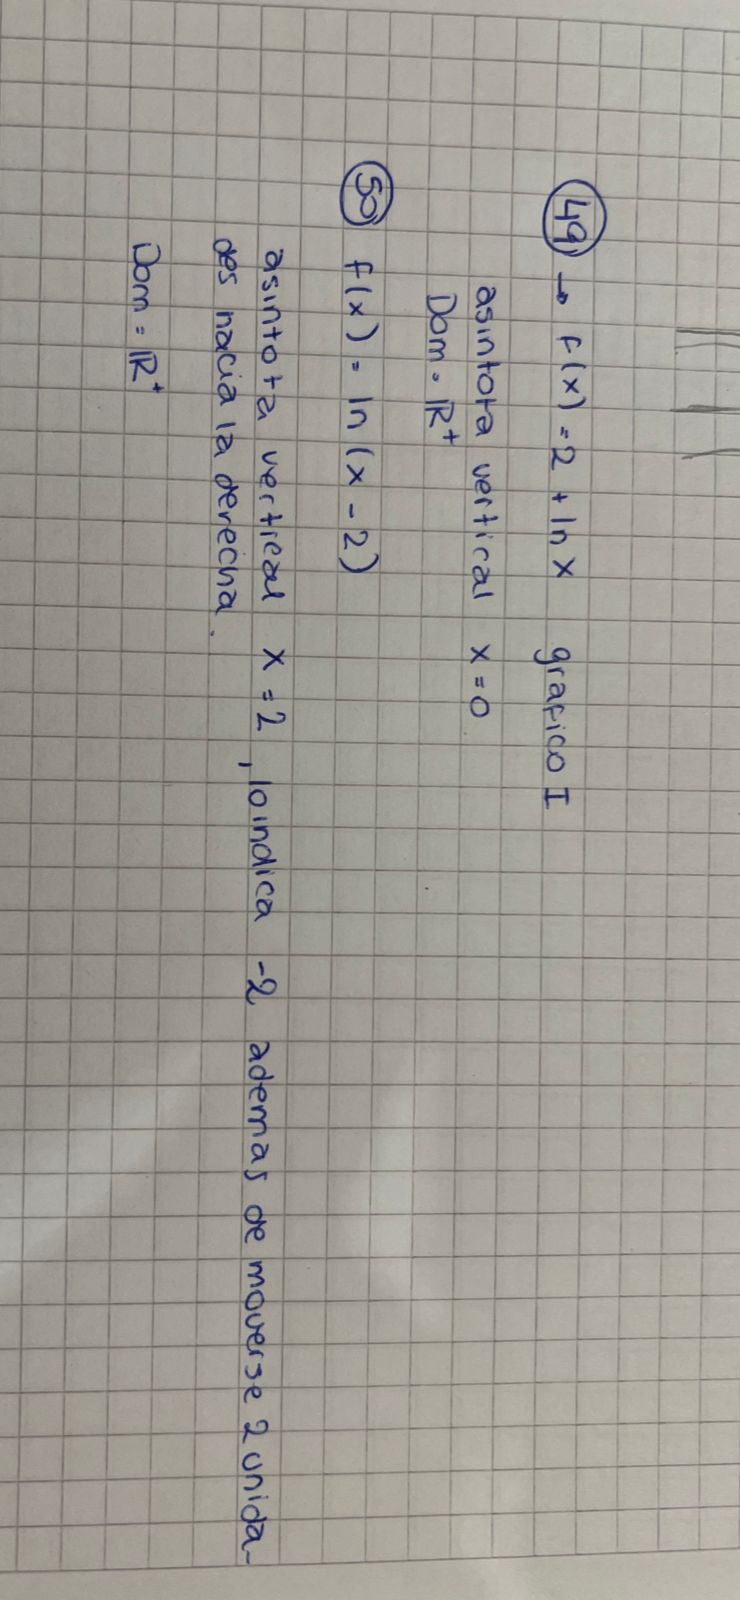 49 → f(x) = 2 + ln x grafico I
asintota vertical x = 0
Dom = ℝ⁺
50 f(x) = ln (x - 2)
asintota vertical x = 2, lo indica -2 ademas de moverse 2 unida-
des hacia la derecha.
Dom = ℝ⁺